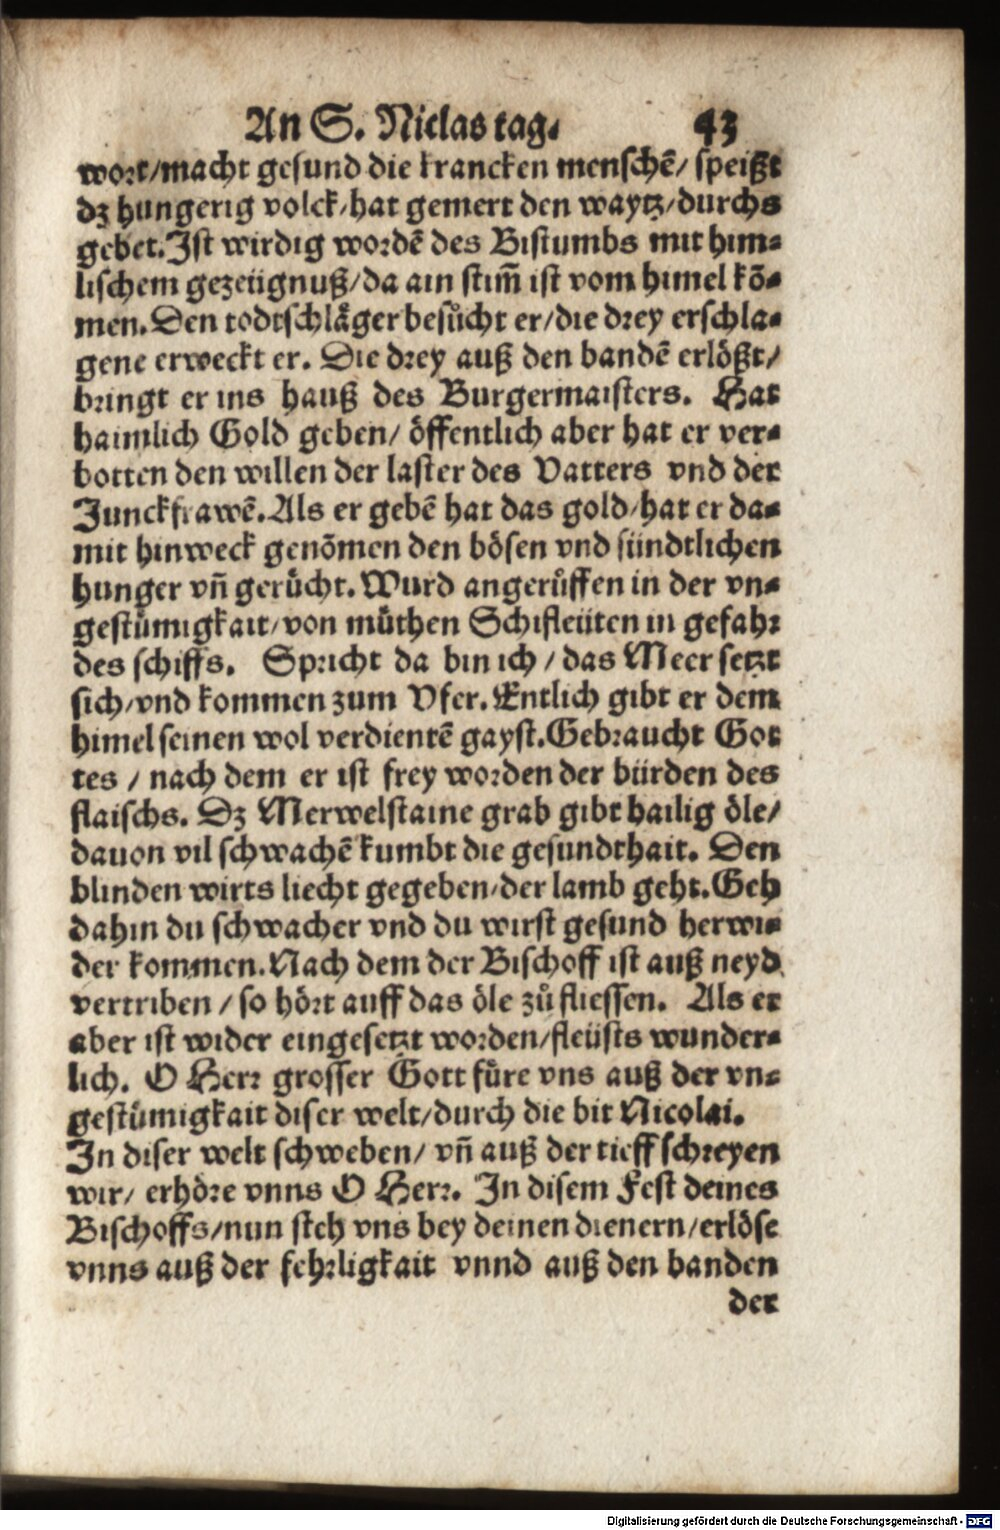 An S. Niclas tag. 43
wort/macht gesund die krancken menschẽ/ speißt
dz hungerig volck/hat gemert den waytz/durchs
gebet. Ist wirdig wordẽ des Bistumbs mit him-
lischem gezeügnuß/da ain stim̃ ist vom himel kõ-
men. Den todtschläger besůcht er/die drey erschla-
gene erweckt er. Die drey auß den bandẽ erlößt/
bringt er ins hauß des Burgermaisters. Hat
haimlich Gold geben/ öffentlich aber hat er ver-
botten den willen der laster des Vatters vnd der
Junckfrawẽ. Als er gebẽ hat das gold/hat er da-
mit hinweck genõmen den bösen vnd sündtlichen
hunger vñ gerücht. Wurd angerůffen in der vn-
gestümigkait/von müthen Schifleüten in gefahr
des schiffs. Spricht da bin ich / das Meer setzt
sich/vnd kommen zum Vfer. Entlich gibt er dem
himel seinen wol verdientẽ gayst. Gebraucht Got
tes / nach dem er ist frey worden der bürden des
flaischs. Dz Merwelstaine grab gibt hailig öle/
dauon vil schwachẽ kumbt die gesundthait. Den
blinden wirts liecht gegeben/der lamb geht. Geh
dahin du schwacher vnd du wirst gesund herwi-
der kommen. Nach dem der Bischoff ist auß neyd
vertriben / so hört auff das öle zů fliessen. Als er
aber ist wider eingesetzt worden/fleüsts wunder-
lich. O Herr grosser Gott füre vns auß der vn-
gestümigkait diser welt/durch die bit Nicolai.
In diser welt schweben/ vñ auß der tieff schreyen
wir/ erhöre vnns O Herr. In disem Fest deines
Bischoffs/nun steh vns bey deinen dienern/erlöse
vnns auß der fehrligkait vnnd auß den banden
der
Digitalisierung gefördert durch die Deutsche Forschungsgemeinschaft - DFG